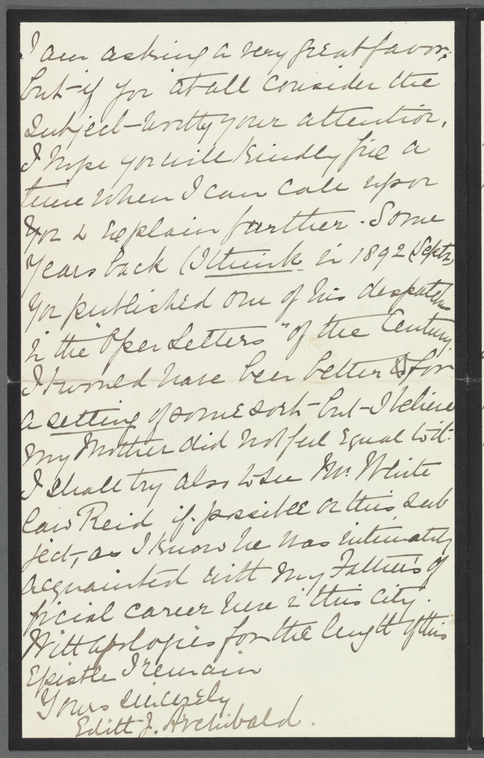 I am asking a very great favor;
but if you at all consider the
subject worthy your attention,
I hope you will kindly fix a
time when I can call upon
you & explain further. Some
years back (I think in 1892 (Septr)
you published one of his despatches
in the "Open Letters" of the Century.
It would have been better for
a setting of some sort - but - I believe
my Mother did not feel equal to it.
I shall try also to see Mr. White
law Reid if possible on this sub
ject, as I know he was intimately
acquainted with my Father's of
ficial career here in this city.
With apologies for the length of this
Epistle I remain
Yours sincerely
Edith J. Archibald.